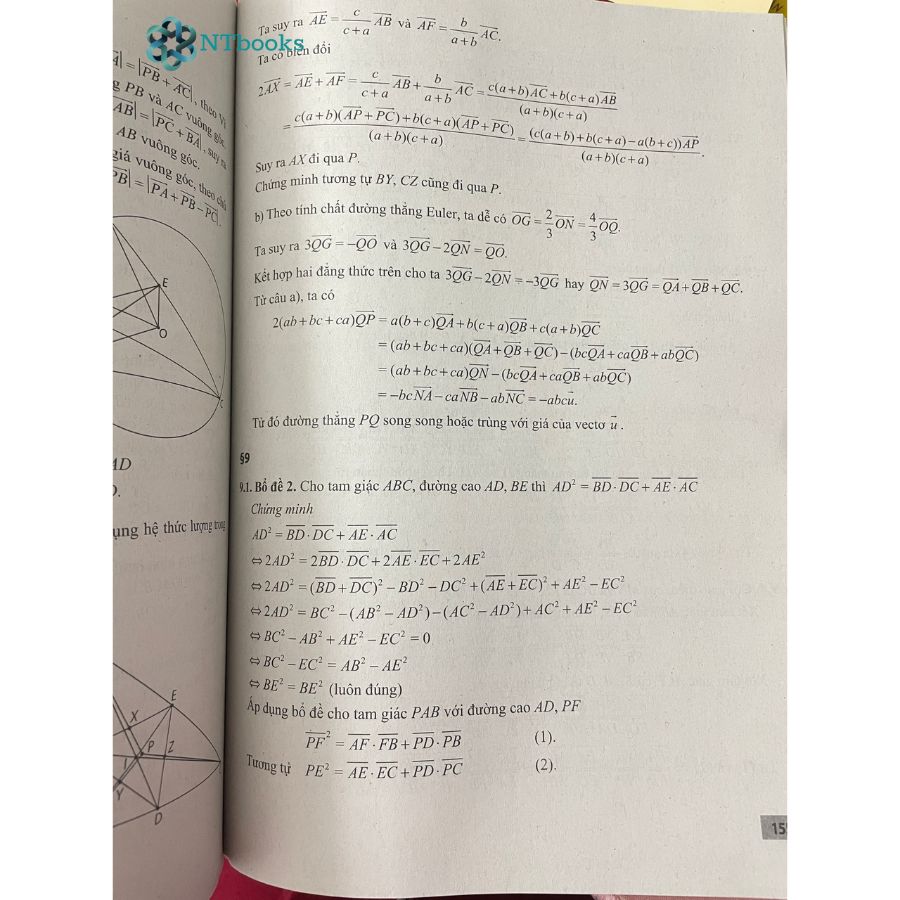 NTbooks
A| = |PB + AC|, theo
g PB và AC vuông góc.
AB| = |PC + BA|, suy ra
AB vuông góc.
giá vuông góc, theo
PB| = |PA + PB − PC|.
E
O
AD
ụng hệ thức lượng trong
E
X
P
Z
I
Y
D
Ta suy ra AE = c/(c+a) AB và AF = b/(a+b) AC.
Ta có biến đổi
2AX = AE + AF = c/(c+a) AB + b/(a+b) AC = (c(a+b)AC + b(c+a)AB)/((a+b)(c+a))
= (c(a+b)(AP + PC) + b(c+a)(AP + PC))/((a+b)(c+a)) = ((c(a+b) + b(c+a) − a(b+c))AP)/((a+b)(c+a)).
Suy ra AX đi qua P.
Chứng minh tương tự BY, CZ cũng đi qua P.
b) Theo tính chất đường thẳng Euler, ta dễ có OG = 2/3 ON = 4/3 OQ.
Ta suy ra 3QG = −QO và 3QG − 2QN = QO.
Kết hợp hai đẳng thức trên cho ta 3QG − 2QN = −3QG hay QN = 3QG = QA + QB + QC.
Từ câu a), ta có
2(ab + bc + ca)QP = a(b+c)QA + b(c+a)QB + c(a+b)QC
= (ab + bc + ca)(QA + QB + QC) − (bcQA + caQB + abQC)
= (ab + bc + ca)QN − (bcQA + caQB + abQC)
= −bcNA − caNB − abNC = −abcu.
Từ đó đường thẳng PQ song song hoặc trùng với giá của vectơ u.
§9
9.1. Bổ đề 2. Cho tam giác ABC, đường cao AD, BE thì AD² = BD · DC + AE · AC
Chứng minh
AD² = BD · DC + AE · AC
⇔ 2AD² = 2BD · DC + 2AE · EC + 2AE²
⇔ 2AD² = (BD + DC)² − BD² − DC² + (AE + EC)² + AE² − EC²
⇔ 2AD² = BC² − (AB² − AD²) − (AC² − AD²) + AC² + AE² − EC²
⇔ BC² − AB² + AE² − EC² = 0
⇔ BC² − EC² = AB² − AE²
⇔ BE² = BE² (luôn đúng)
Áp dụng bổ đề cho tam giác PAB với đường cao AD, PF
PF² = AF · FB + PD · PB (1).
Tương tự PE² = AE · EC + PD · PC (2).
15